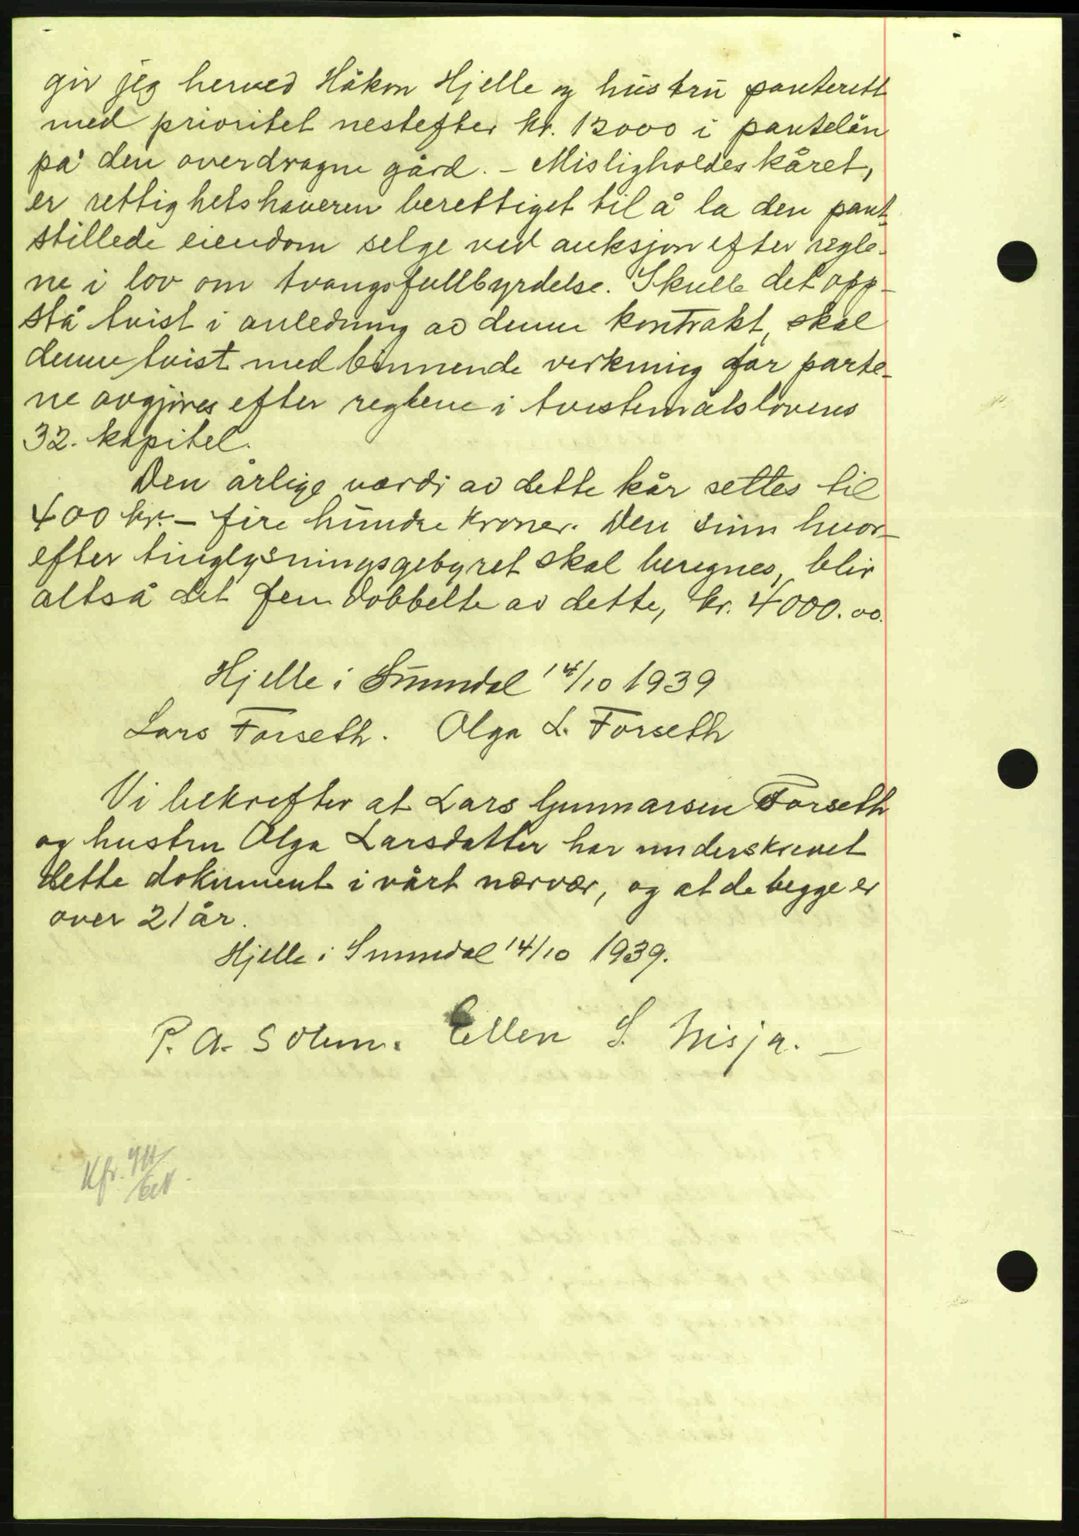 gir jeg herved Håkon Hjelle og hustru panterett
med prioritet nestefter kr. 12000 i pantelån
på den overdragne gård. – Misligholdes kåret,
er rettighetshaveren berettiget til å la den pant-
stillede eiendom selge ved auksjon efter regle-
ne i lov om tvangsfullbyrdelse. Skulle det opp-
stå tvist i anledning av denne kontrakt, skal
denne tvist med binnende virkning for parte-
ne avgjøres efter reglene i tvistemålslovens
32. kapitel.
Den årlige værdi av dette kår settes til
400 kr. – fire hundre kroner. Den sum hvor-
efter tinglysningsgebyret skal beregnes, blir
altså det fem dobbelte av dette, kr. 4000.00.
Hjelle i Sunndal 14/10 1939
Lars Forseth. Olga L. Forseth
Vi bekrefter at Lars Gunnarsen Forseth
og hustru Olga Larsdatter har underskrevet
dette dokument i vårt nærvær, og at de begge er
over 21 år.
Hjelle i Sunndal 14/10 1939.
P. A. Solem. Ellen S. Nisja. –
Kfr.